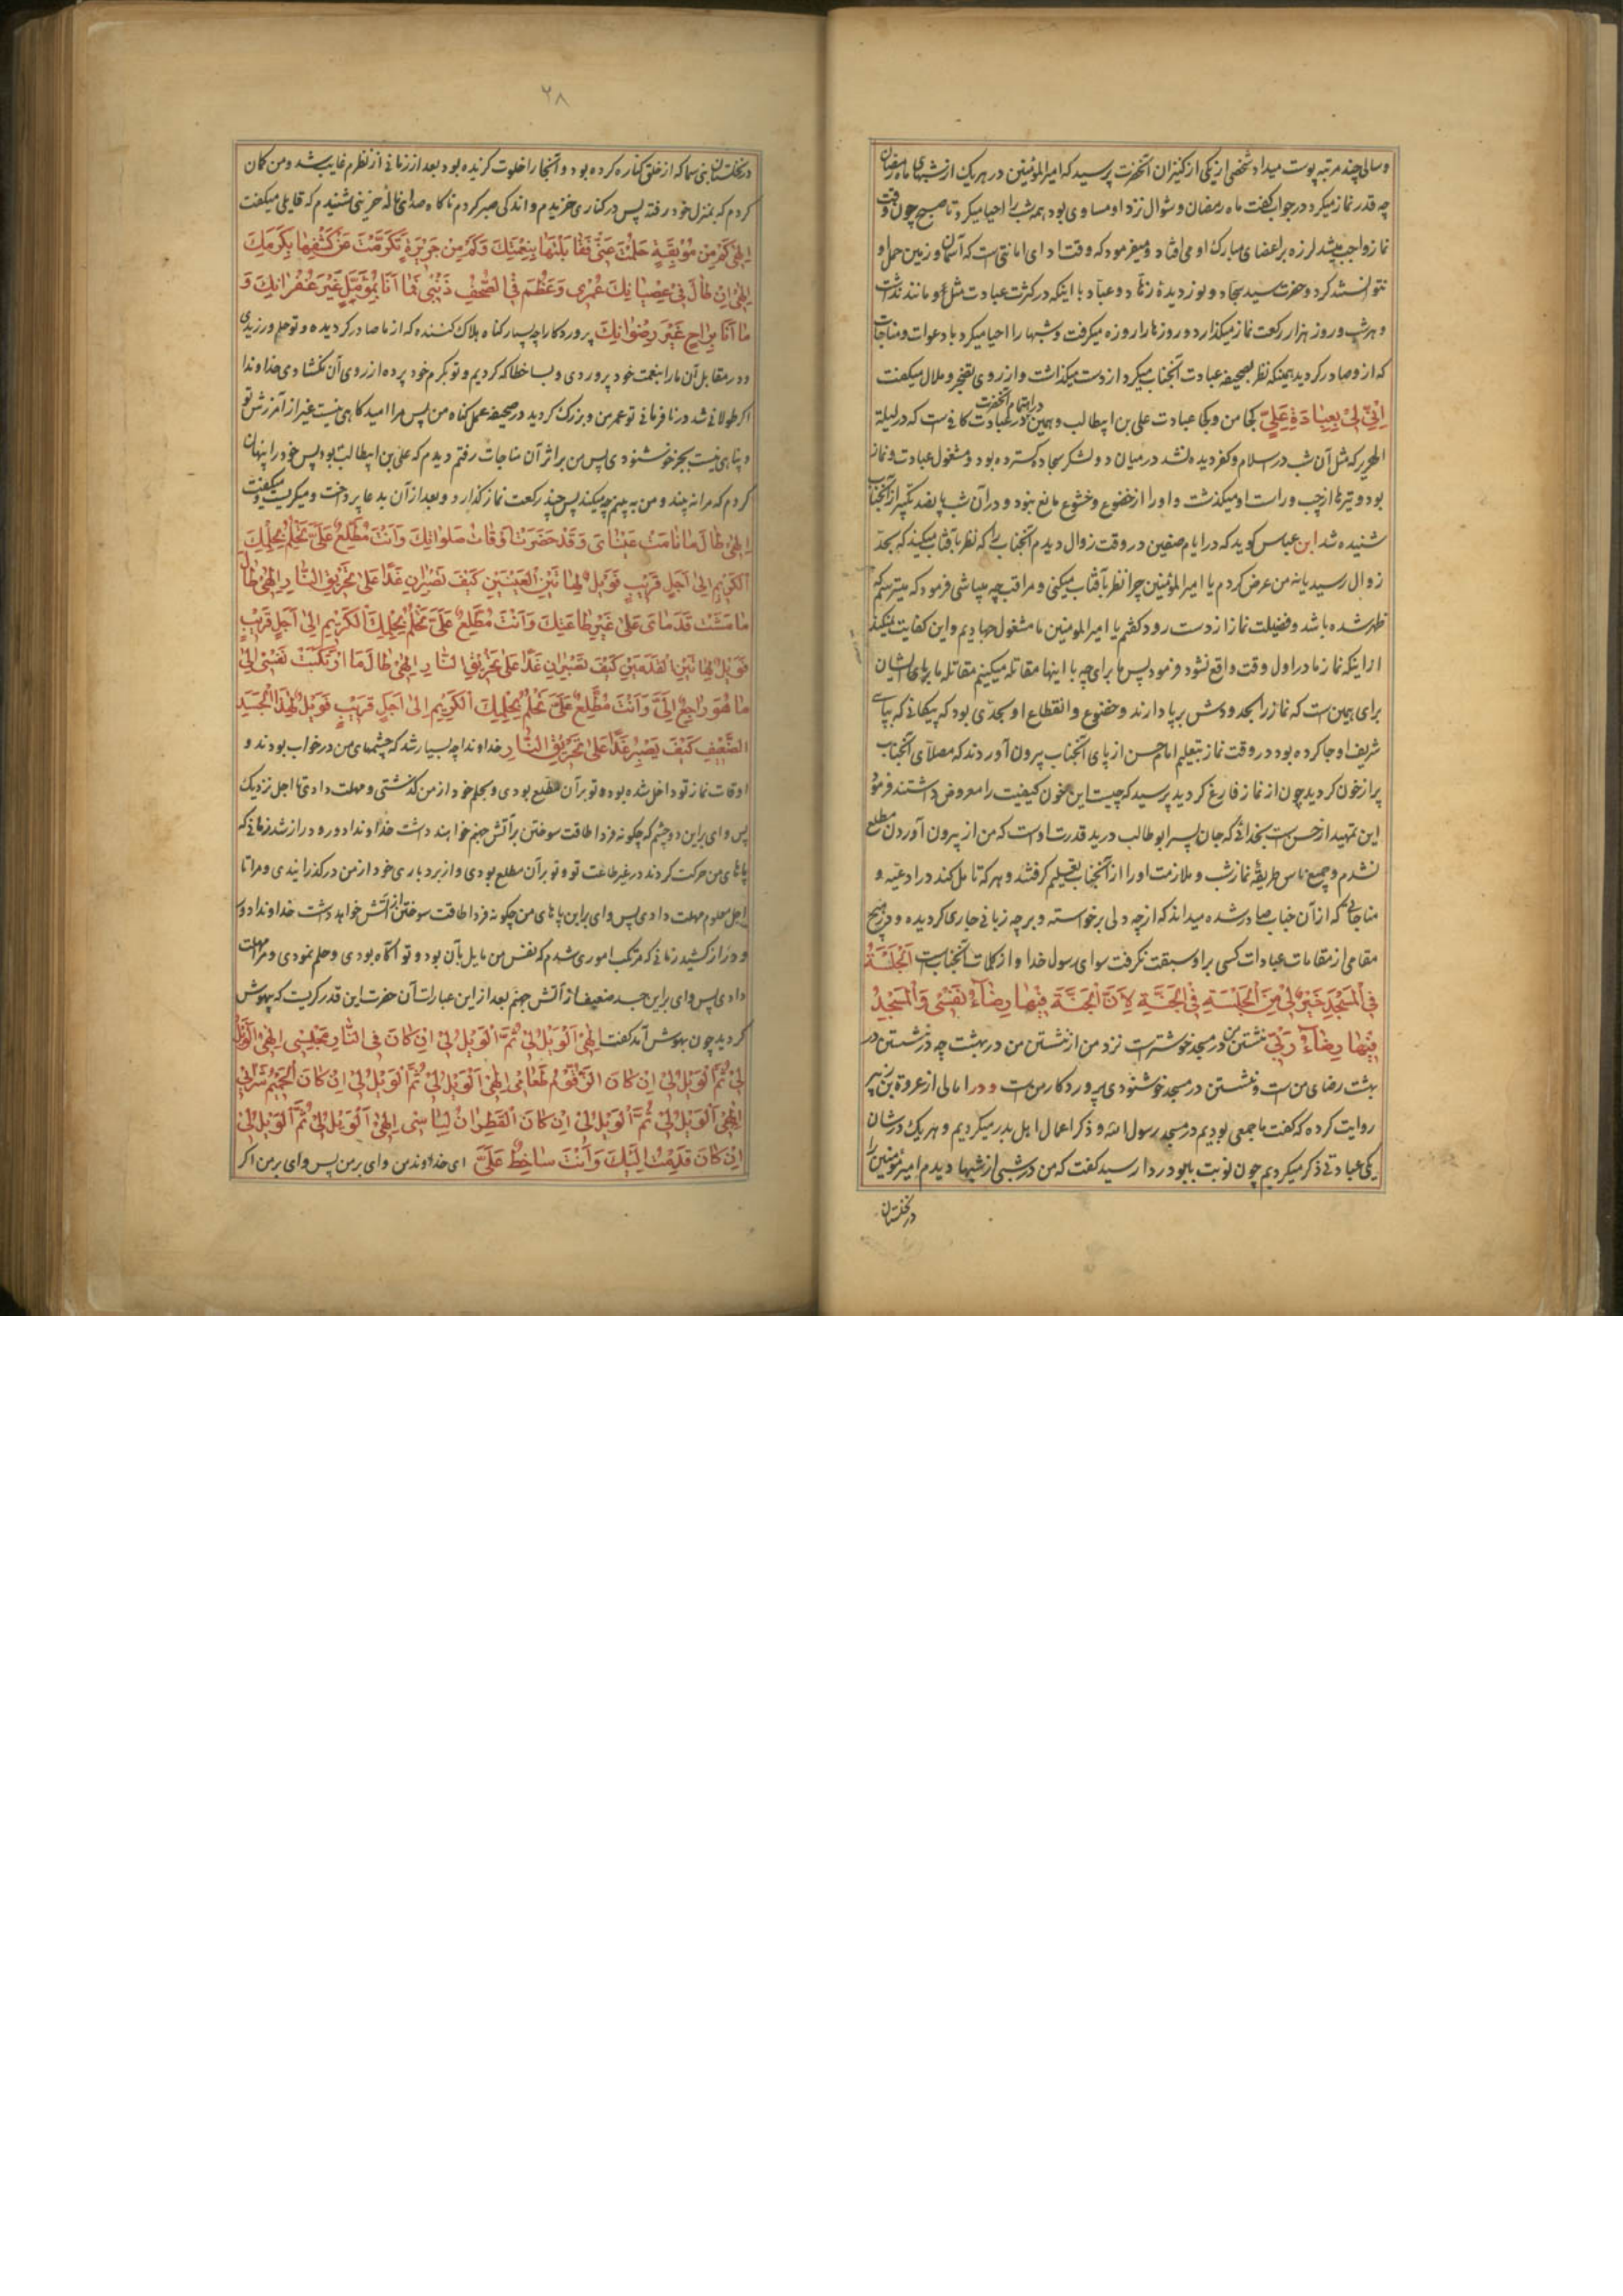 و سالی چند مرتبه پوست میداد شخصی از یکی از کنیزان آنحضرت پرسید که امیرالمؤمنین در هر یک از شبهای ماه رمضان
چه قدر نماز میکرد در جواب گفت ماه رمضان و شوال نزد او مساوی بود همه شب را احیا میکرد تا صبح چون وقت
نماز واجب میشد لرزه بر اعضای مبارک او می افتاد و میفرمود که وقت ادای امانتی است که آسمان و زمین حمل او
نتوانستند کرد و حضرت سید سجاد و نور دیدهٔ زهاد و عباد با اینکه در کثرت عبادت مثل و مانند نداشت
و هر شب و روز هزار رکعت نماز میگذارد و روزها را روزه میگرفت و شبها را احیا میکرد با دعوات و مناجات
که از او صادر گردید همینکه نظر بصحیفه عبادت آنجناب میکرد از دست میگذاشت و از روی تضجر و ملال میگفت
اَنّیٰ لی بِعِبادَةِ عَلِیٍّ کجا من و کجا عبادت علی بن ابیطالب و همین در اهتمام آنحضرت در عبادت کافی است که در لیلة
الهریر که مثل آن شب در اسلام و کفر دیده نشد در میان دو لشکر سجاده گسترده بود و مشغول عبادت و نماز
بود و تیرها از چپ و راست او میگذشت و او را از خضوع و خشوع مانع نبود و در آن شب پانصد تکبیر از آنجناب
شنیده شد ابن عباس گوید که در ایام صفین در وقت زوال دیدم آنجناب را که نظر بآفتاب میکند که بحد
زوال رسیده یا نه من عرض کردم یا امیرالمؤمنین چرا نظر بآفتاب میکنی و مراقب چه میباشی فرمود که میترسم که
ظهر شده باشد و فضیلت نماز از دست رود گفتم یا امیرالمومنین ما مشغول جهادیم و این کفایت میکند
از اینکه نماز ما در اول وقت واقع نشود فرمود پس ما برای چه با اینها مقاتله میکنیم مقاتله ما برپای ایشان
برای همین است که نماز را بحدودش برپا دارند و خضوع و انقطاع او بحدّی بود که پیکانی که بپای
شریف او جا کرده بود در وقت نماز بتعلیم امام حسن از پای آنجناب بیرون آوردند که مصلای آنجناب
پر از خون گردید چون از نماز فارغ گردید پرسید که چیست این خون کیفیت را معروض داشتند فرمود
این تمهید از حسن است بخدائی که جان پسر ابوطالب در ید قدرت اوست که من از بیرون آوردن مطلع
نشدم و جمیع ناس طریقهٔ نماز شب و ملازمت اوراد از آنجناب تعلیم گرفتند و هر که تامل کند در ادعیه و
مناجاتی که از آن جناب صادر شده میداند که از چه دلی برخواسته و بر چه زبانی جاری گردیده و در هیچ
مقامی از مقامات عبادات کسی بر او سبقت نگرفت سوای رسول خدا و از کلمات آنجنابست اَلْجَلْسَةُ
فِی الْمَسْجِدِ خَیْرٌ لی مِنَ الْجَلْسَةِ فِی الْجَنَّةِ لِاَنَّ الْجَنَّةَ فیها رِضاءُ نَفْسی وَالْمَسْجِدُ
فیها رِضاءُ رَبّی نشستن من در مسجد خوشتر است نزد من از نشستن من در بهشت چه در نشستن در
بهشت رضای من است و نشستن در مسجد خوشنودی پروردگار من است و در امالی از عروة بن زبیر
روایت کرده که گفت با جمعی بودیم در مسجد رسول الله و ذکر اعمال اهل بدر میکردیم و هر یک در شان
یکی عبادتی ذکر میکردیم چون نوبت بابودردا رسید گفت که من در شبی از شبها دیدم امیرمؤمنین را
در نخلستان
۲۸
در نخلستان بنی که از خلق کناره کرده بود و آنجا را خلوت گزیده بود بعد از زمانی از نظرم غایب شد و من گمان
کردم که بمنزل خود رفته پس در کناری خزیدم و اندکی صبر کردم ناگاه صدای نالهٔ حزینی شنیدم که قایلی میگفت
اِلٰهی کَمْ مِنْ مُوْبِقَةٍ حَلُمْتَ عَنّی فَقابَلْتَها بِنِعْمَتِكَ وَکَمْ مِنْ جَریرَةٍ تَکَرَّمْتَ عَنْ کَشْفِها بِکَرَمِكَ
اِلٰهی اِنْ طالَ فی عِصْیانِكَ عُمْری وَعَظُمَ فِی الصُّحُفِ ذَنْبی فَما اَنَا بِمُؤَمِّلٍ غَیْرَ غُفْرانِكَ وَ
ما اَنَا بِراجٍ غَیْرَ رِضْوانِكَ پروردگارا چه بسیار گناه هلاک کننده که از ما صادر گردیده و تو حلم ورزیدی
و در مقابل آن ما را بنعمت خود پروردی و بسا خطا که کردیم و تو بکرم خود پرده از روی آن نگشادی خداوندا
اگر طولانی شد در نافرمانی تو عمر من و بزرگ گردید در صحیفه عمل گناه من پس مرا امیدگاهی نیست غیر از آمرزش تو
و پناهی نیست بجز خوشنودی پس من بر اثر آن مناجات رفتم دیدم که علی بن ابیطالب بود پس خود را پنهان
کردم که مرا نه بیند و من به بینم چه میکند پس چند رکعت نماز گذارد و بعد از آن بدعا پرداخت و میگریست و میگفت
اِلٰهی طالَ ما نامَتْ عَیْنایَ وَقَدْ حَضَرَتْ اَوْقاتُ صَلَواتِكَ وَاَنْتَ مُطَّلِعٌ عَلَیَّ تَحْلُمُ بِحِلْمِكَ
الْکَریمِ اِلیٰ اَجَلٍ قَریبٍ فَوَیْلٌ لِهاتَیْنِ الْعَیْنَیْنِ کَیْفَ تَصْبِرانِ غَدًا عَلیٰ تَحْریقِ النّارِ اِلٰهی طالَ
ما مَشَتْ قَدَمایَ عَلیٰ غَیْرِ طاعَتِكَ وَاَنْتَ مُطَّلِعٌ عَلَیَّ تَحْلُمُ بِحِلْمِكَ الْکَریمِ اِلیٰ اَجَلٍ قَریبٍ
فَوَیْلٌ لِهاتَیْنِ الْقَدَمَیْنِ کَیْفَ تَصْبِرانِ غَدًا عَلیٰ تَحْریقِ النّارِ اِلٰهی طالَ مَا ارْتَکَبَتْ نَفْسی اِلیٰ
ما هُوَ راجِعٌ اِلَیَّ وَاَنْتَ مُطَّلِعٌ عَلَیَّ تَحْلُمُ بِحِلْمِكَ الْکَریمِ اِلیٰ اَجَلٍ قَریبٍ فَوَیْلٌ لِهٰذَا الْجَسَدِ
الضَّعیفِ کَیْفَ یَصْبِرُ غَدًا عَلیٰ تَحْریقِ النّارِ خداوندا چه بسیار شد که چشمهای من در خواب بودند و
اوقات نماز تو داخل شده بود و تو بر آن مطلع بودی و بحلم خود از من گذشتی و مهلت دادی تا اجل نزدیک
پس وای بر این دو چشم که چگونه فردا طاقت سوختن بر آتش جهنم خواهند داشت خداوندا دور و دراز شد زمانی که
پاهای من حرکت کردند در غیر طاعت تو و تو بر آن مطلع بودی و از بردباری خود از من درگذرانیدی و مرا تا
اجل معلوم مهلت دادی پس وای بر این پاهای من چگونه فردا طاقت سوختن آتش خواهد داشت خداوندا دور
و دراز کشید زمانی که مرتکب اموری شدم که نفس من مایل بآن بود و تو آگاه بودی و حلم نمودی و مرا مهلت
دادی پس وای بر این جسد ضعیف از آتش جهنم بعد از این عبارات آن حضرت این قدر گریست که بیهوش
گردید چون بهوش آمد گفت اِلٰهی اَلْوَیْلُ لی ثُمَّ الْوَیْلُ لی اِنْ کانَ فِی النّارِ مَجْلِسی اِلٰهی اَلْوَیْلُ
لی ثُمَّ الْوَیْلُ لی اِنْ کانَ الزَّقُّومُ طَعامی اِلٰهی اَلْوَیْلُ لی ثُمَّ الْوَیْلُ لی اِنْ کانَ الْحَمیمُ شَرابی
اِلٰهی اَلْوَیْلُ لی ثُمَّ الْوَیْلُ لی اِنْ کانَ الْقَطِرانُ لِباسی اِلٰهی اَلْوَیْلُ لی ثُمَّ الْوَیْلُ لی
اِنْ کانَ قَدِمْتُ اِلَیْكَ وَاَنْتَ ساخِطٌ عَلَیَّ ای خداوند من وای بر من پس وای بر من اگر